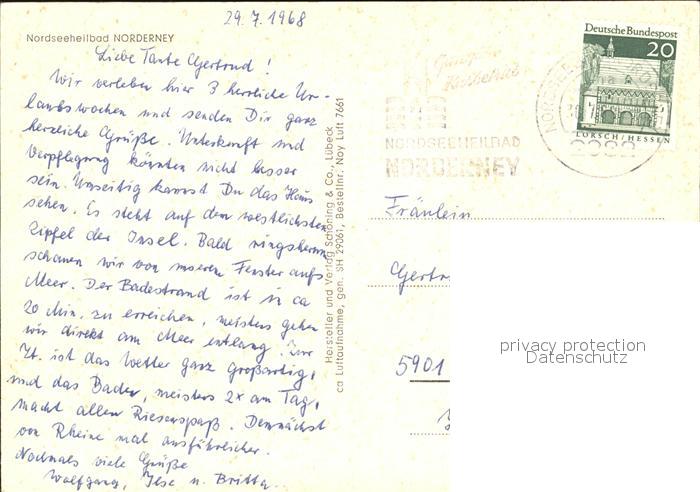 29.7.1968
Nordseeheilbad NORDERNEY
Liebe Tante Gertrud!
Wir verleben hier 3 herrliche Ur-
laubswochen und senden Dir ganz
herzliche Grüße. Unterkunft und
Verpflegung könnten nicht besser
sein. Umseitig kannst Du das Haus
sehen. Es steht auf dem westlichsten
Zipfel der Insel. Bald ringsherum
schauen wir von unseren Fenster aufs
Meer. Der Badestrand ist in ca
20 Min. zu erreichen, meistens gehen
wir direkt am Meer entlang. Zur
Zt. ist das Wetter ganz großartig,
und das Baden, meistens 2x am Tag,
macht allen Riesenspaß. Demnächst
von Rheine mal ausführlicher.
Nochmals viele Grüße
Wolfgang, Ilse u. Britta.
Hersteller und Verlag Schöning & Co., Lübeck
ca Luftaufnahme, gen. SH 29061, Bestellnr. Noy Luft 7661
Ganzjährig
Kurbetrieb
NORDSEEHEILBAD
NORDERNEY
Deutsche Bundespost
20
LORSCH/HESSEN
2982
Fräulein
Gertr
5901
privacy protection
Datenschutz